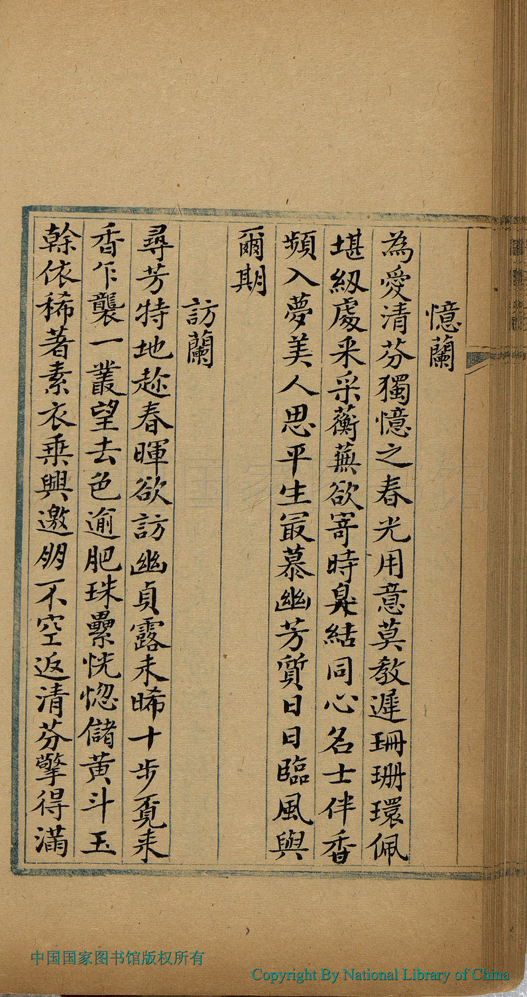 憶蘭
為愛清芬獨憶之春光用意莫教遲珊珊環佩
堪紉處采采蘅蕪欲寄時臭結同心名士伴香
頻入夢美人思平生冣慕幽芳質日日臨風與
爾期
訪蘭
尋芳特地趂春暉欲訪幽貞露未晞十步覓來
香乍襲一叢望去色逾肥珠纍恍惚儲黃斗玉
榦依稀著素衣乘興邀朋不空返清芬擎得滿
中国国家图书馆版权所有
Copyright By National Library of China